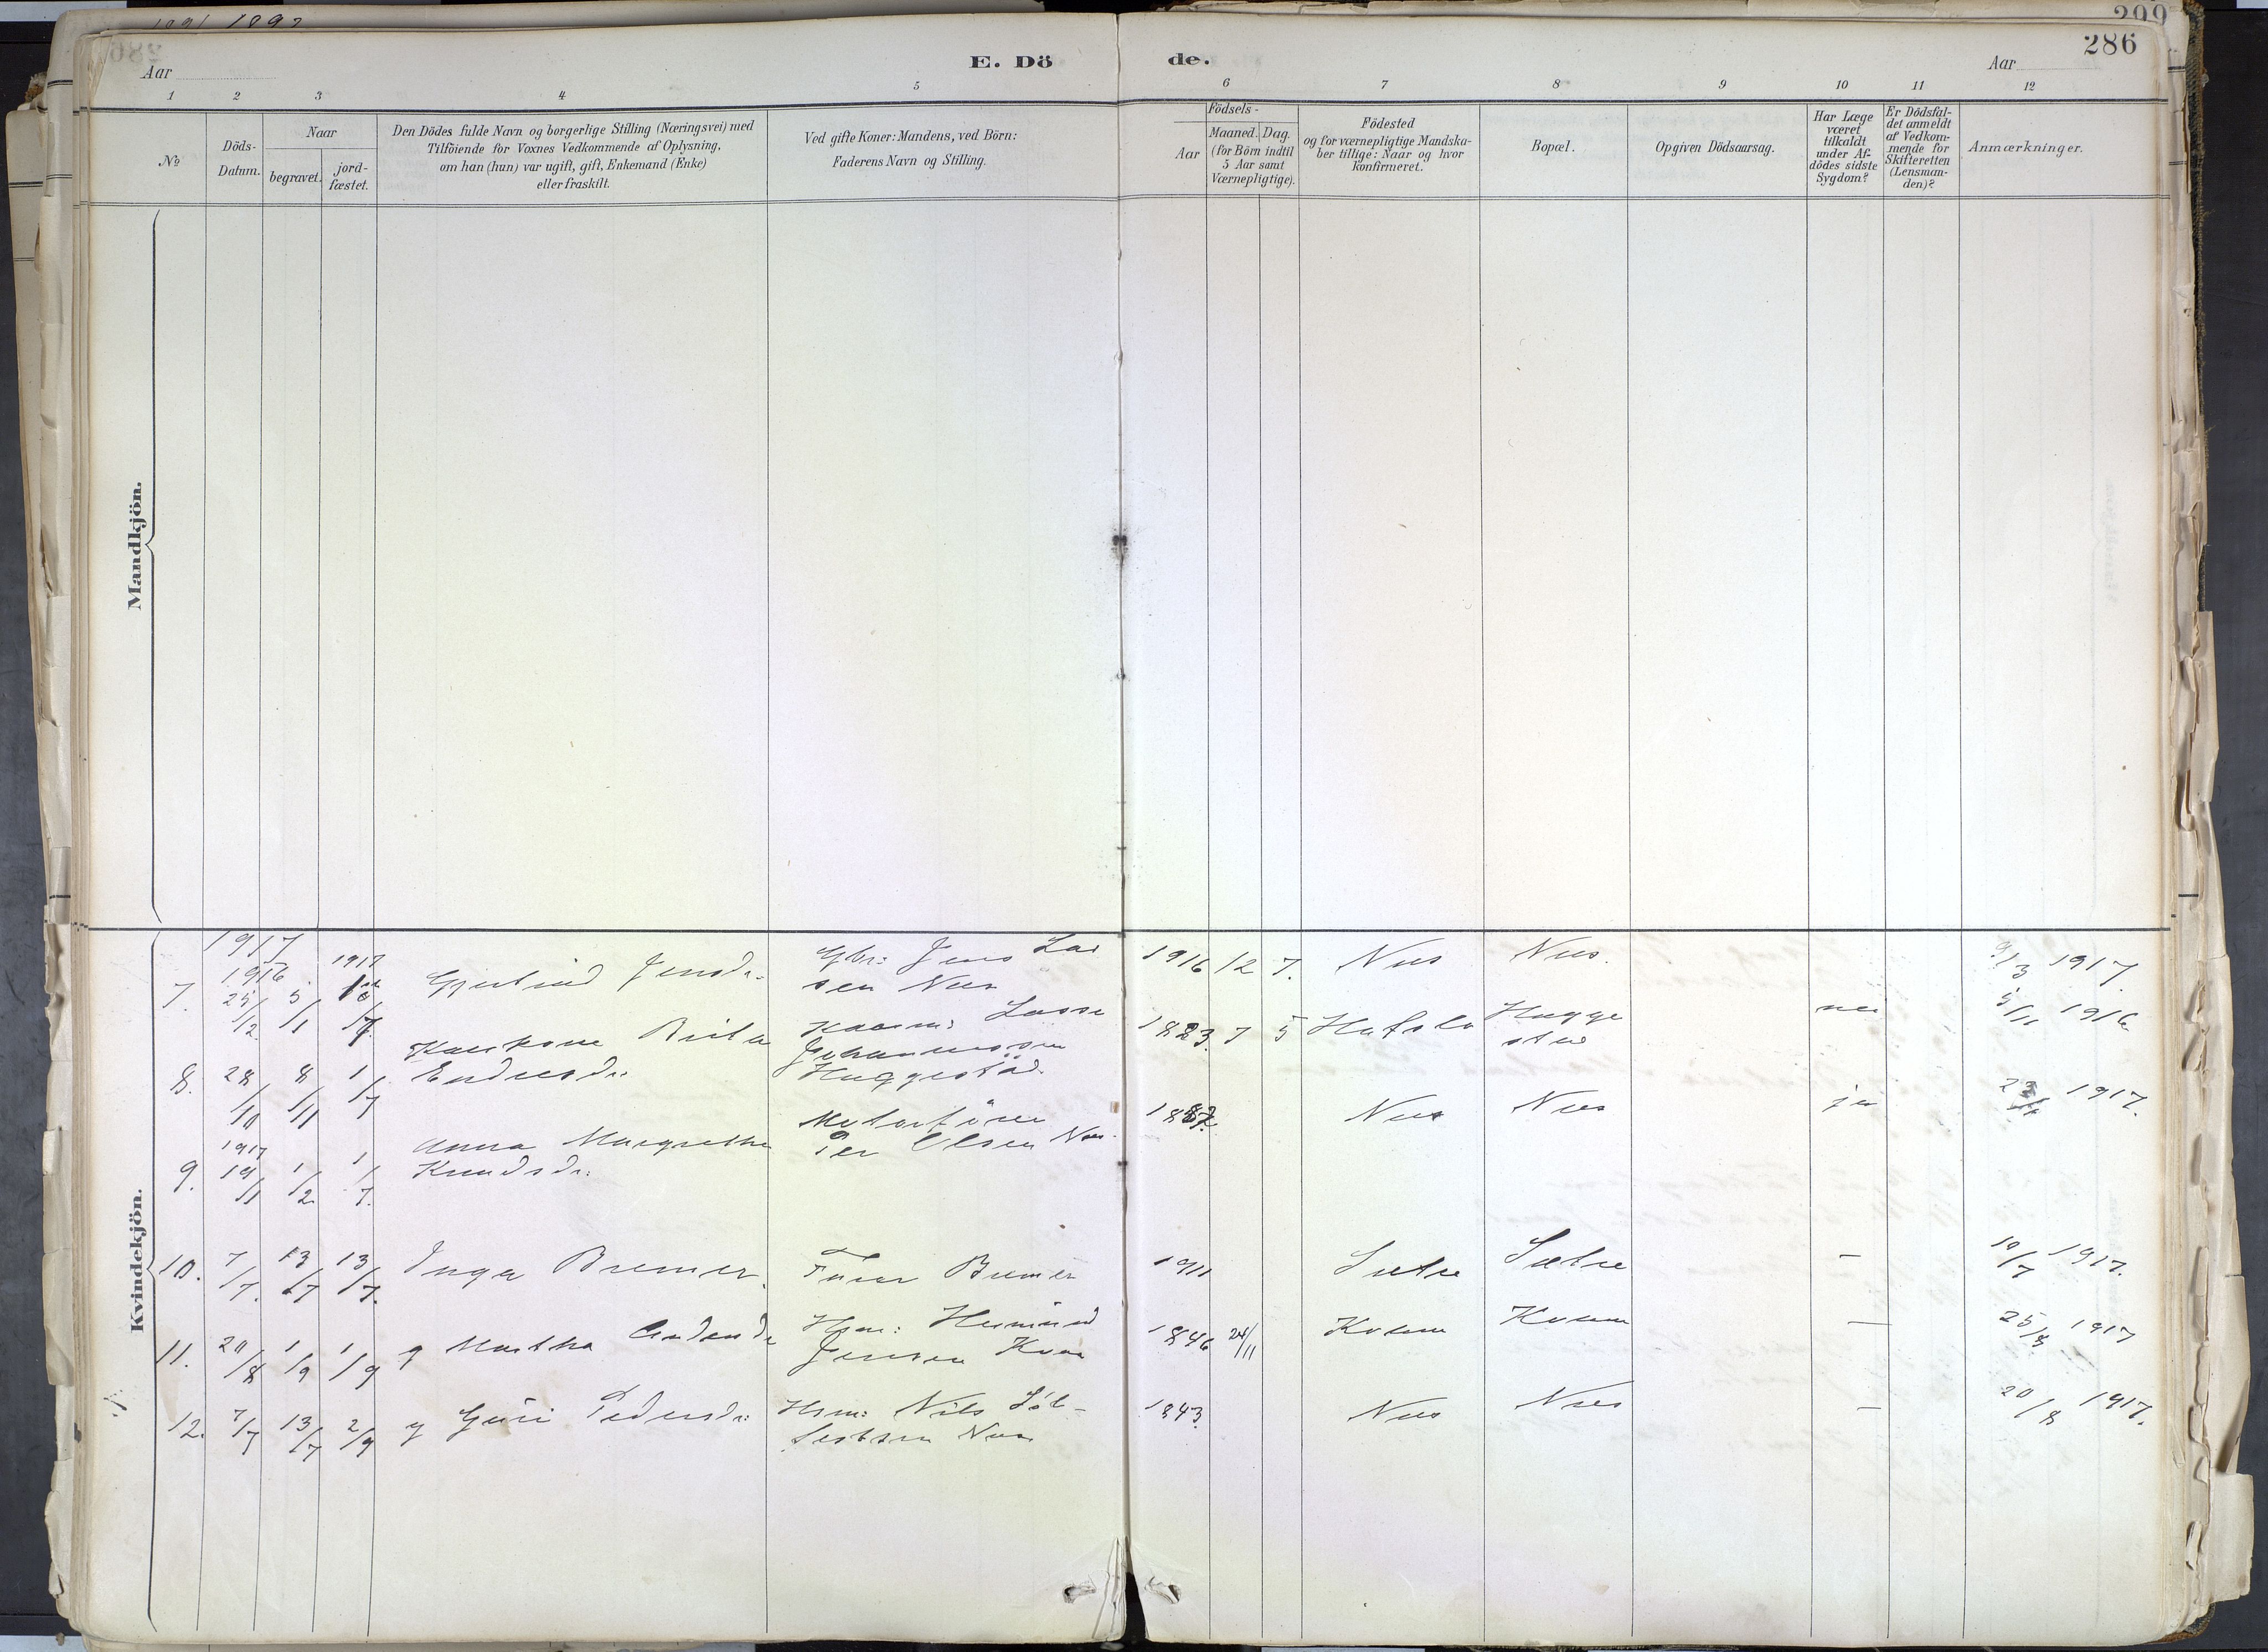 1891 1892
299
286
Aar
E. Dö
de.
Aar
1 2 3 4 5 6 7 8 9 10 11 12
No
Döds-
Datum.
Naar
begravet.
jord-
fæstet.
Den Dödes fulde Navn og borgerlige Stilling (Næringsvei) med
Tilföiende for Voxnes Vedkommende af Oplysning,
om han (hun) var ugift, gift, Enkemand (Enke)
eller fraskilt.
Ved gifte Koner: Mandens, ved Börn:
Faderens Navn og Stilling.
Födsels-
Aar
Maaned. Dag.
(for Börn indtil
5 Aar samt
Værnepligtige).
Födested
og for værnepligtige Mandska-
ber tillige: Naar og hvor
konfirmeret.
Bopæl.
Opgiven Dödsaarsag.
Har Læge
været
tilkaldt
under Af-
dödes sidste
Sygdom?
Er Dödsfal-
det anmeldt
af Vedkom-
mende for
Skifteretten
(Lensman-
den)?
Anmærkninger.
Mandkjön.
Kvindekjön.
1917
1916 1917
7. 25/12 5/1 Jensdr. Gbr: Jens Las
sen Nes 1916 12 7. Nes Nes. 9/3 1917.
8. 28/10 8/11 1/7 Kaarkone Brita
Endresdr. Kaarm: Lasse
Johannessen
Huggestad 1823. 7 5 Hafslo Hugge
stad nei 5/11 1916
1917
9. 19/1 1/2 1/7. Anna Margrethe
Knudsdr: Motorförer
Per Olsen Nes. Nes Nes ja 1917.
10. 7/7. 13/7 13/7. Inga Bremer. Bremer 1911 Sætre Sætre — 10/7 1917.
11. 20/8 1/9 1/9 g Martha Hsm: Hermund
Jensen Kvam 1846 24/11 Kvam Kvam — 25/8 1917
12. 7/7 13/7 2/9 g Guri Pedersdr: Hsm: Nils Sól-
festsen Nes 1843. Nes Nes — 20/8 1917.